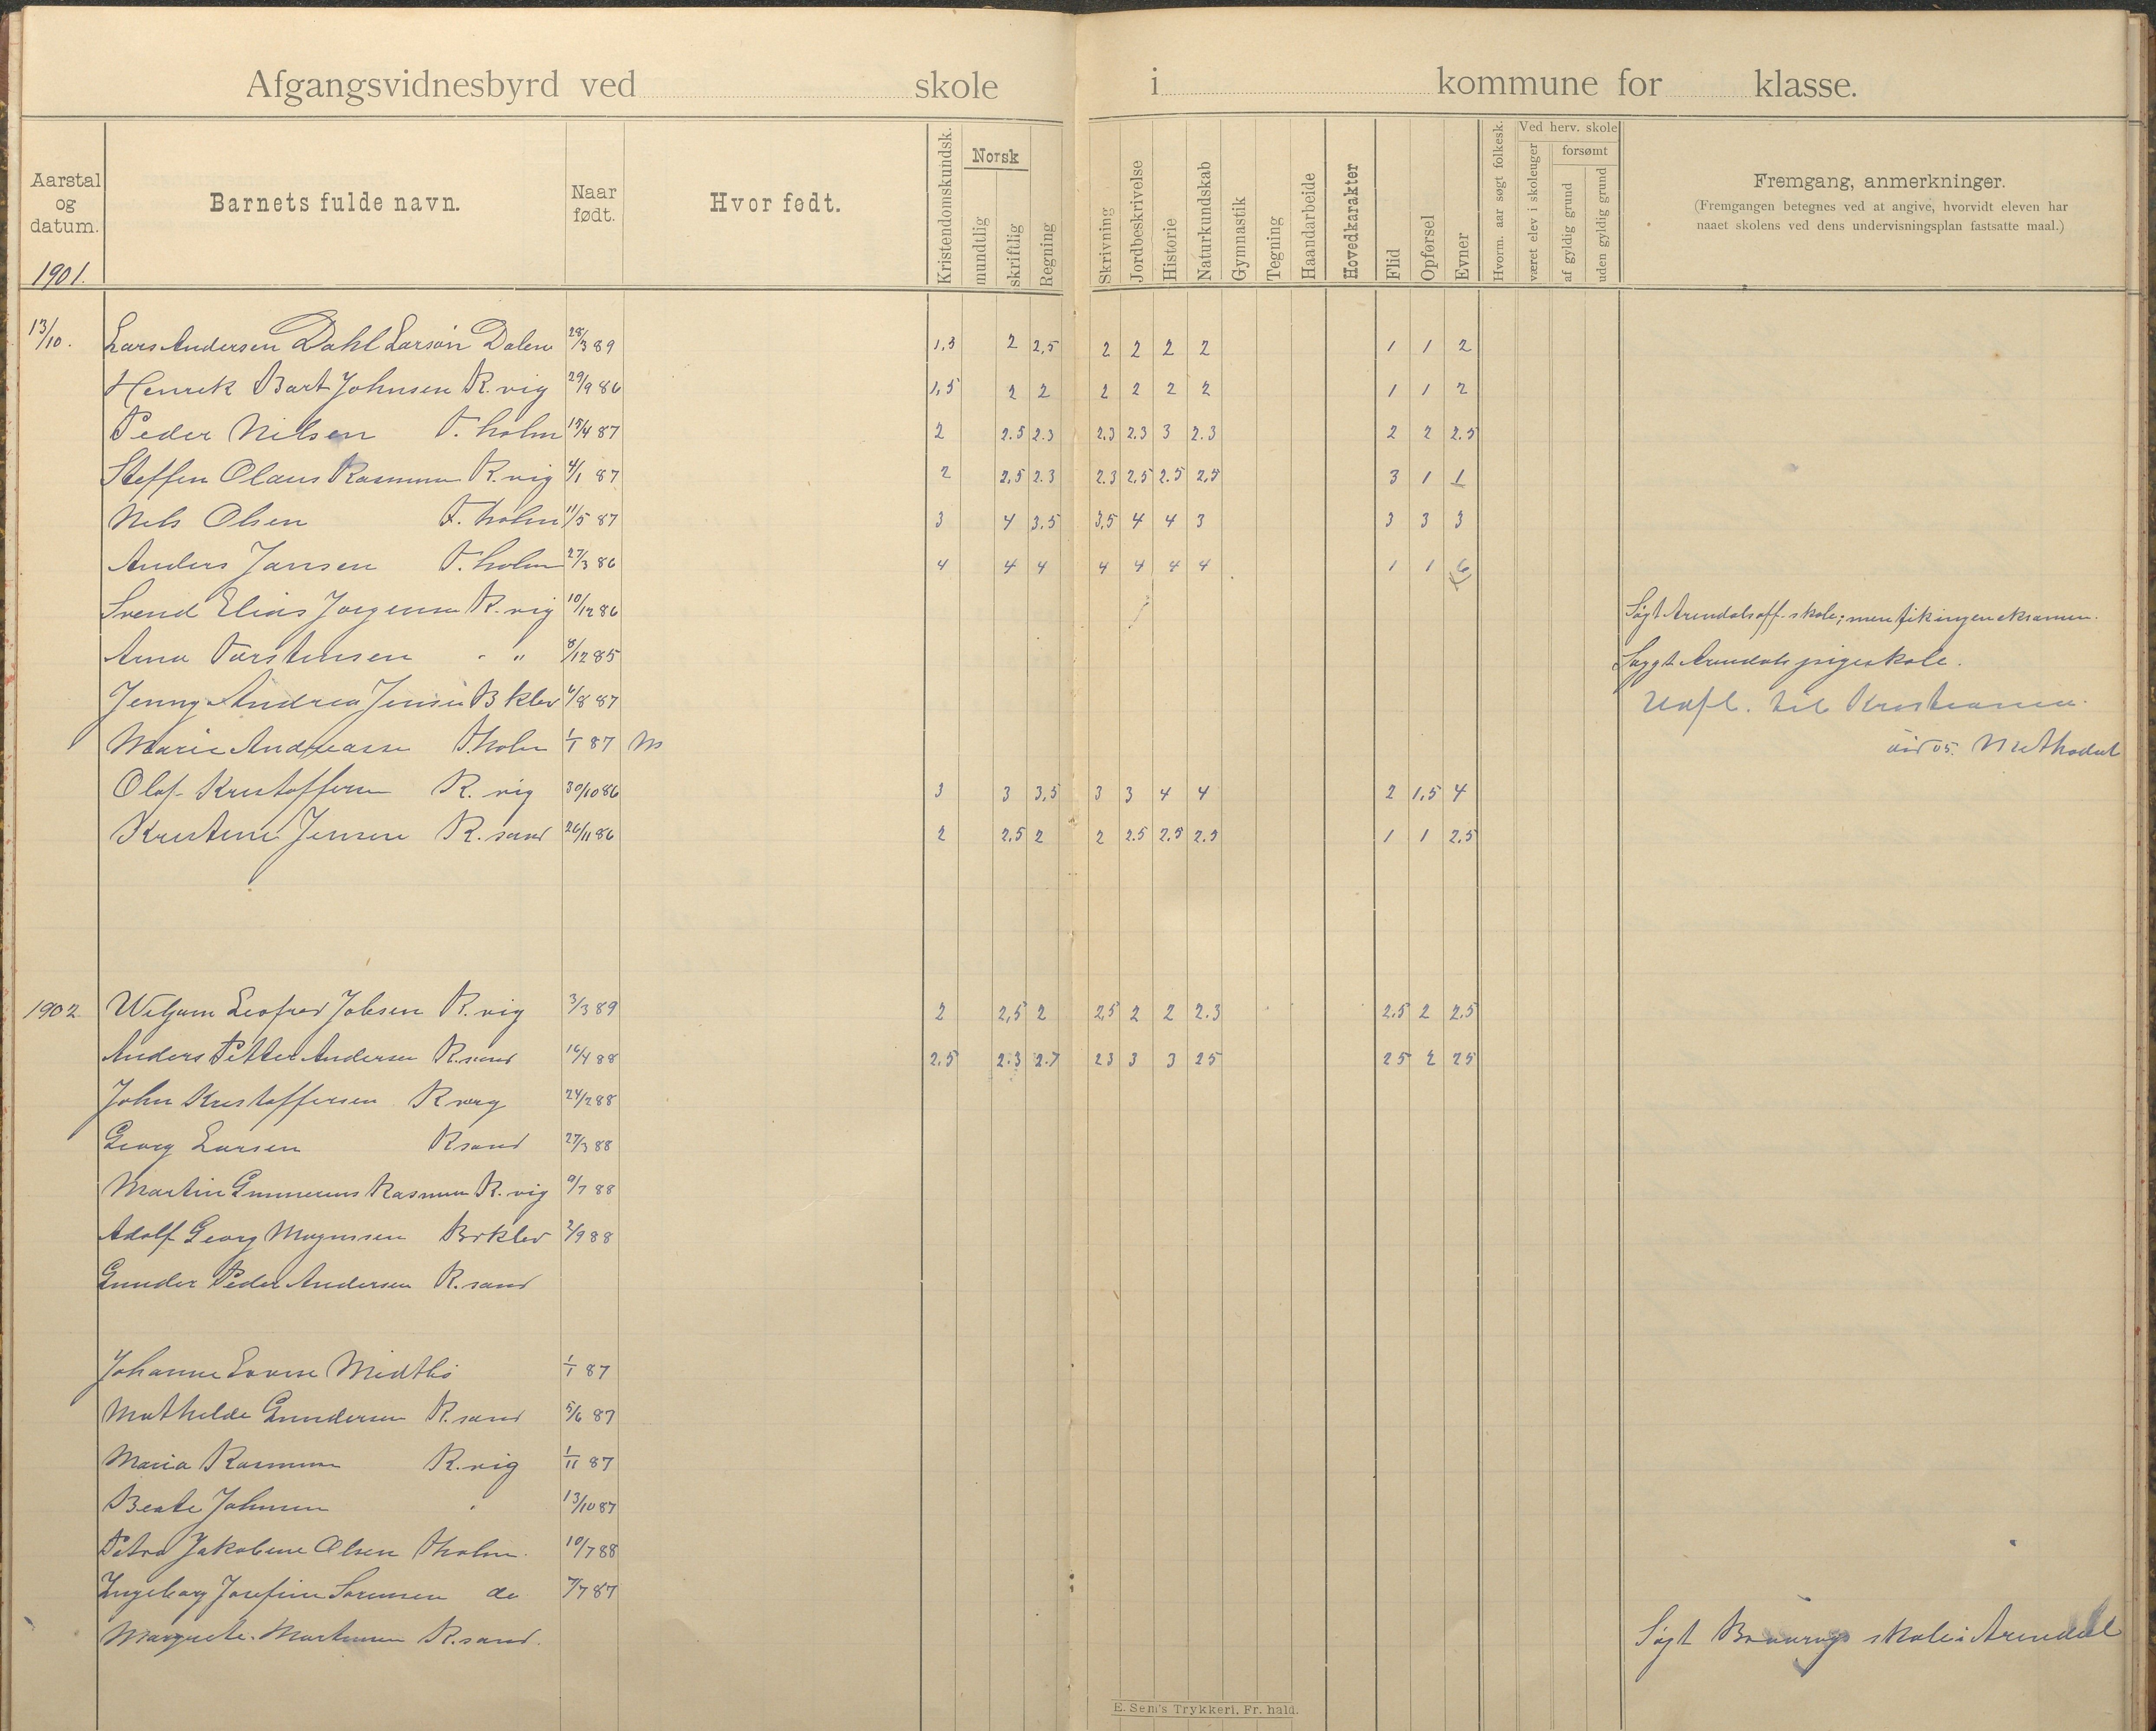 Afgangsvidnesbyrd ved skole i kommune for klasse.
Aarstal og datum. Barnets fulde navn. Naar født. Hvor født. Kristendomskundsk. Norsk mundtlig skriftlig Regning Skrivning Jordbeskrivelse Historie Naturkundskab Gymnastik Tegning Haandarbeide Hovedkarakter Flid Opførsel Evner Hvorm. aar søgt folkesk. Ved herv. skole været elev i skoleuger forsømt af gyldig grund uden gyldig grund Fremgang, anmerkninger.
(Fremgangen betegnes ved at angive, hvorvidt eleven har
naaet skolens ved dens undervisningsplan fastsatte maal.)
1901.
13/10. Lars Andersen Dahl Larson Dalen 28/3 89 1,3 2 2,5 2 2 2 2 1 1 2
Henrik Bart Johnsen R. vig 29/9 86 1,5 2 2 2 2 2 2 1 1 2
Peder Nilsen T. holm 15/4 87 2 2.5 2.3 2.3 2.3 3 2.3 2 2 2.5
Steffen Olaus Rasmussen R. vig 4/1 87 2 2,5 2.3 2.3 2,5 2.5 2,5 3 1 1
Nils Olsen T. holm 11/5 87 3 4 3.5 3,5 4 4 3 3 3 3
Anders Jansen T. holm 27/3 86 4 4 4 4 4 4 4 1 1 6
Svend Elias Jørgensen R. vig 10/12 86 Søgt Arendals off. skole; men fik ingen eksamen.
Anna Torstensen - " 8/12 85 Søgt Arendals pigeskole.
Jenny Andrea Jensen B klev 6/8 87 Udfl. til Kristiania.
Marie Andreassen T. holm 1/1 87 05. Methodist
Olaf Kristoffersen R. vig 30/10 86 3 3 3,5 3 3 4 4 2 1,5 4
Kristine Jensen R. sand 26/11 86 2 2,5 2 2 2.5 2.5 2.5 1 1 2,5
1902 Wiljam Leofred Jobsen R. vig 3/3 89 2 2,5 2 2,5 2 2 2.3 2.5 2 2.5
Anders Petter Andersen R. sand 16/4 88 2.5 2.3 2.7 23 3 3 25 25 2 25
John Kristoffersen R vig 24/2 88
Georg Larsen R sand 27/3 88
Martin Gunnerius Rasmussen R. vig 9/7 88
Adolf Georg Magnussen Brklev 2/9 88
Gunder Peder Andersen R. sand
Johanne Lovise Midtbø 1/1 87
Mathilde Gundersen R. sand 5/6 87
Maria Rasmussen R. vig 1/11 87
Beate Johnsen " 13/10 87
Petra Jakobine Olsen Tholm. 10/7 88
Ingeborg Josefine Sørensen do 7/7 87
Margrete Martinsen R. sand. Søgt skole i Arendal
E. Sem's Trykkeri, Fr. hald.